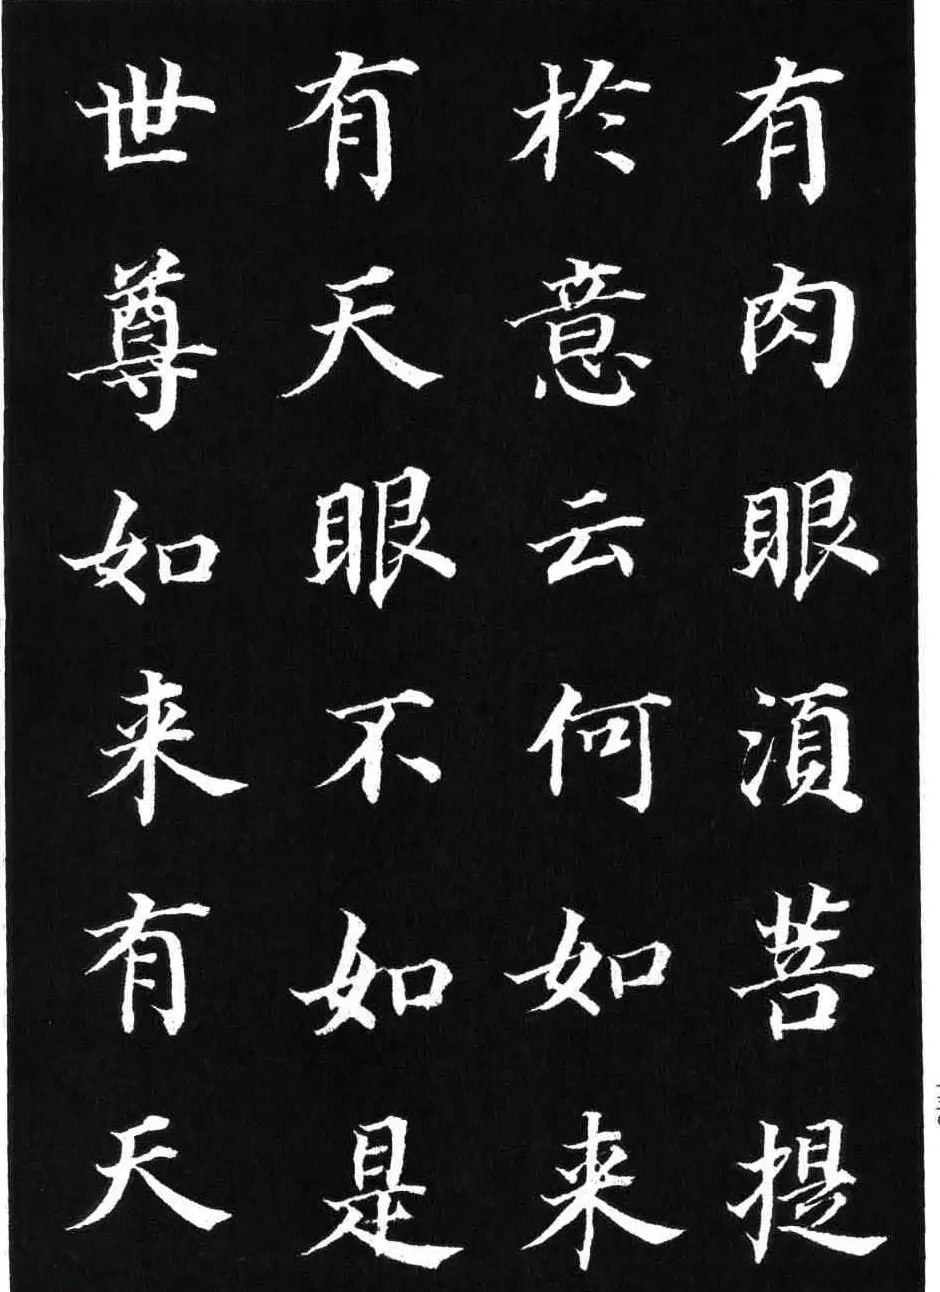 有肉眼湏菩提
於意云何如来
有天眼不如是
世尊如来有天